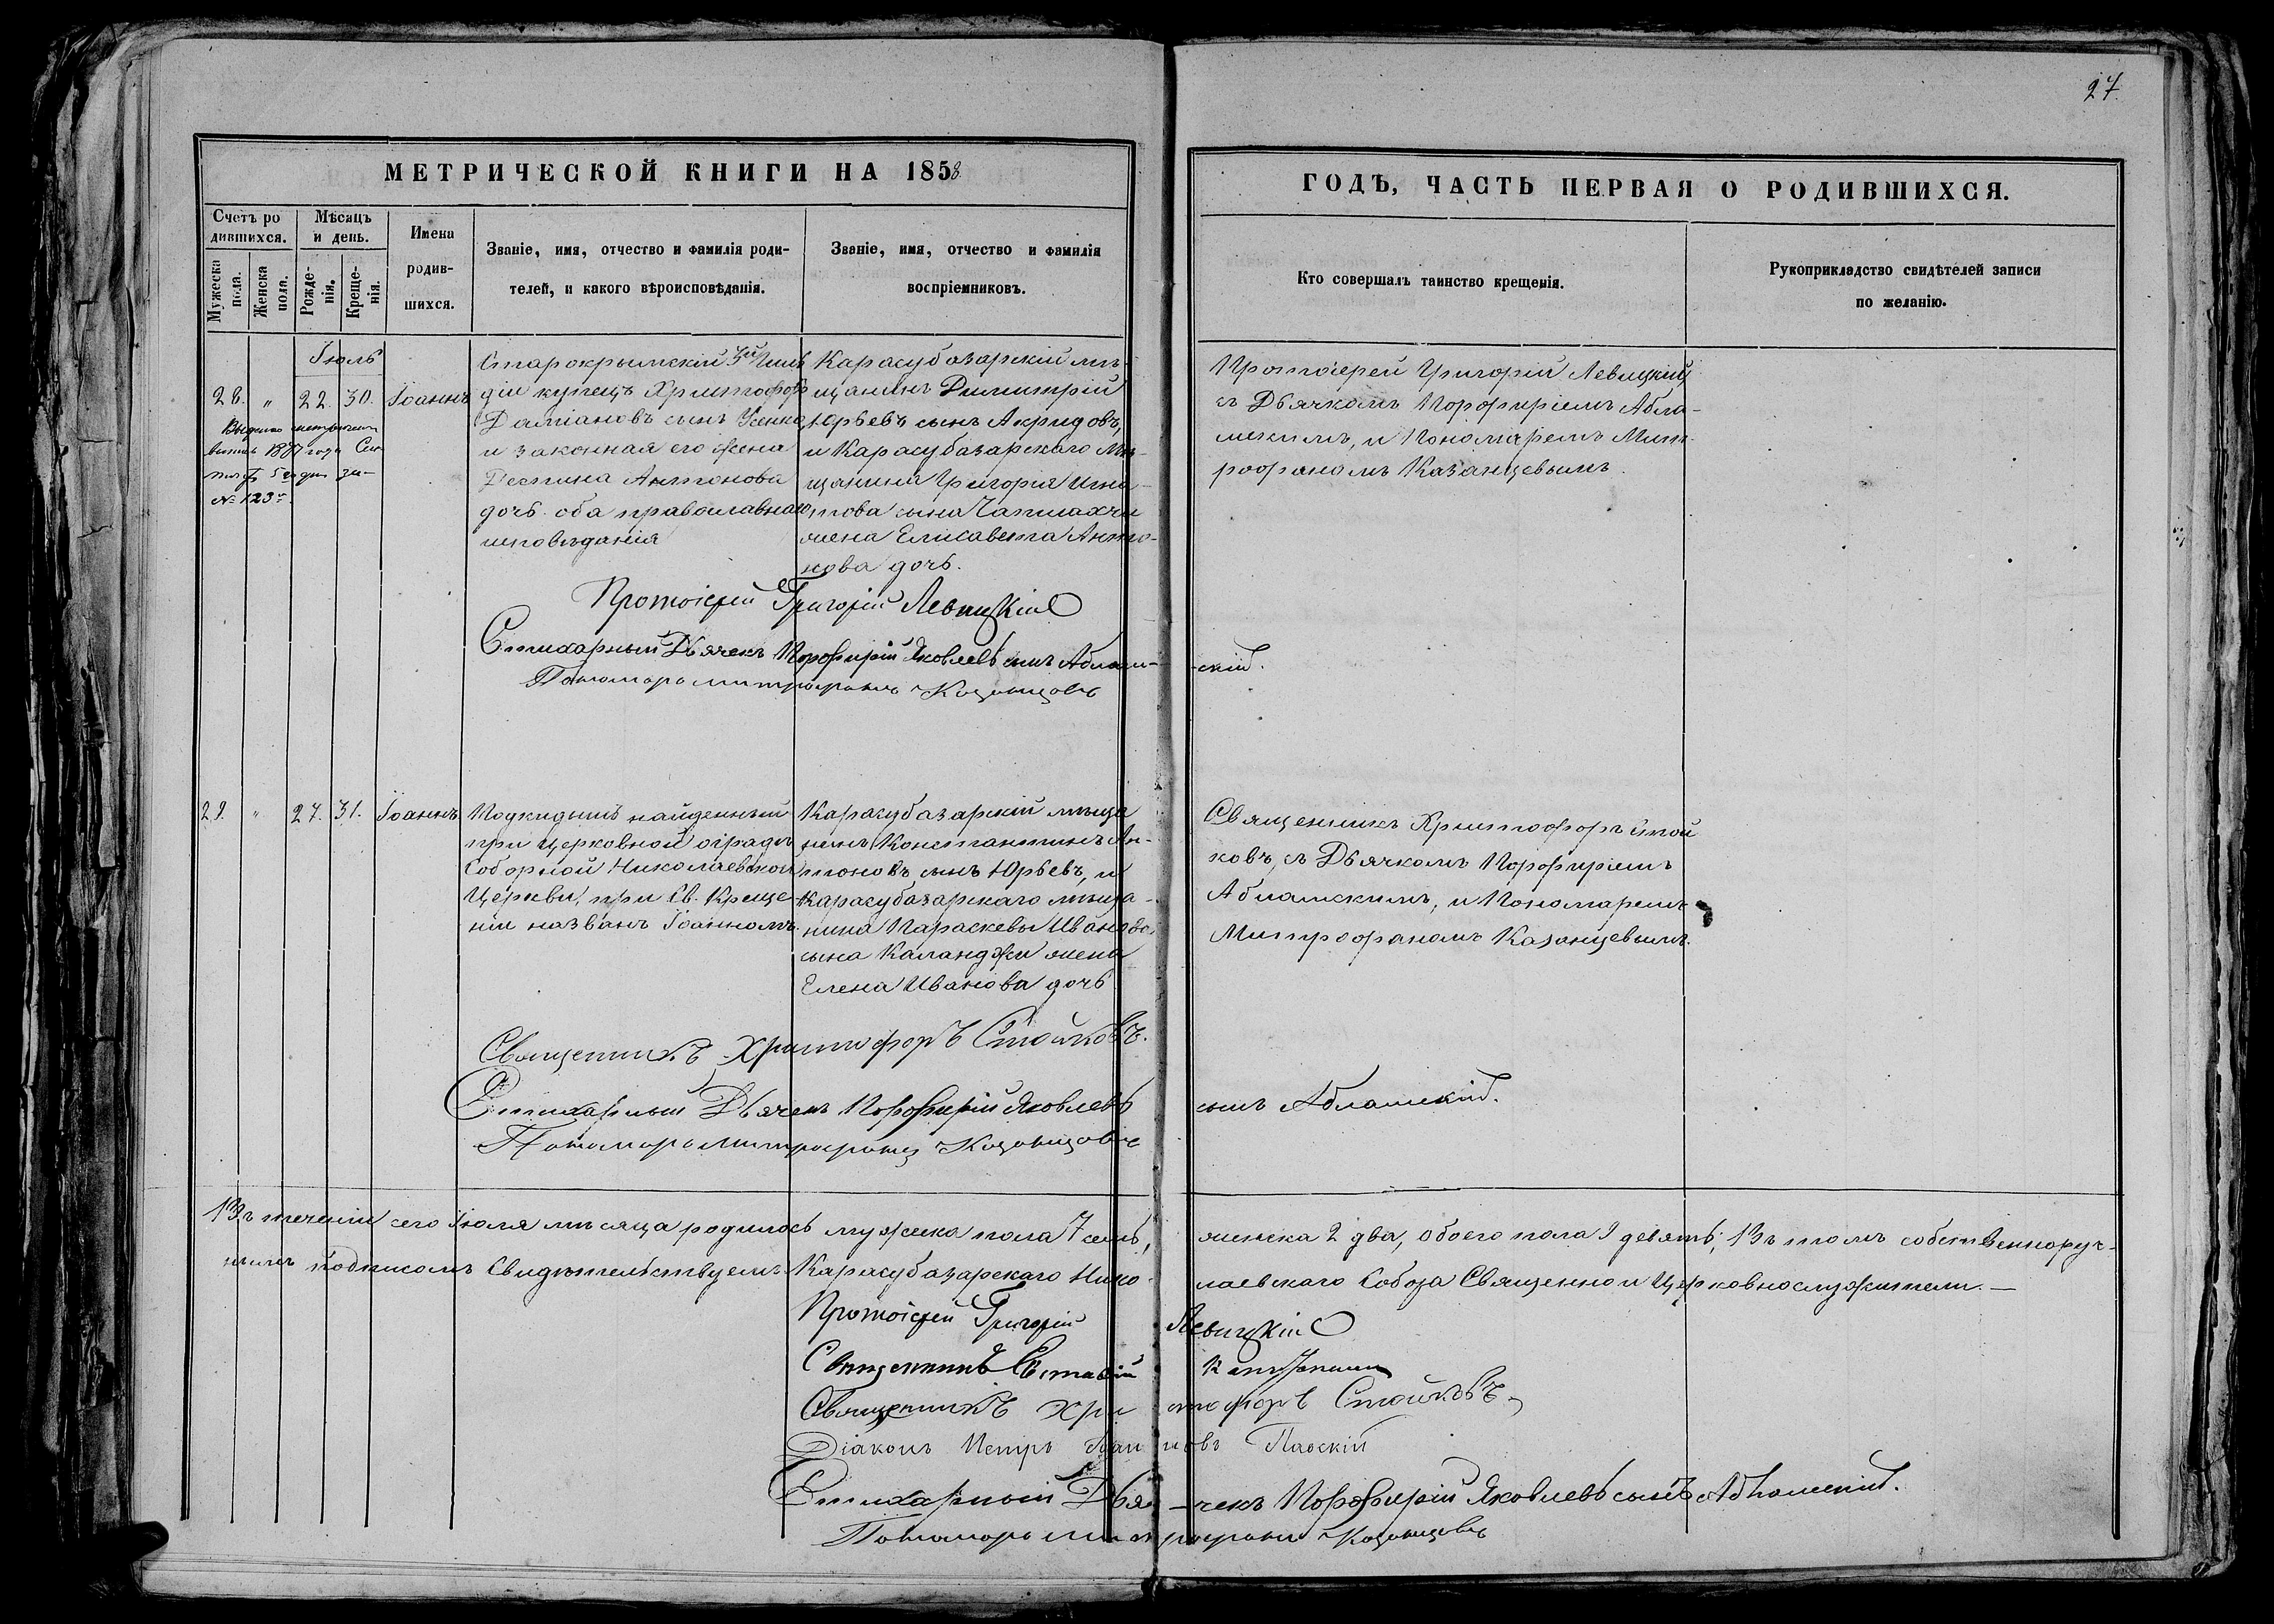 27.
МЕТРИЧЕСКОЙ КНИГИ НА 1858
ГОДЪ, ЧАСТЬ ПЕРВАЯ О РОДИВШИХСЯ.
Счетъ ро
дившихся.
Мужеска
пола.
Женска
пола.
Мѣсяцъ
и день.
Рожде-
нія.
Креще-
нія.
Имена
родив-
шихся.
Званіе, имя, отчество и фамилія роди-
телей, и какого вѣроисповѣданія.
Званіе, имя, отчество и фамилія
воспріемниковъ.
Кто совершалъ таинство крещенія.
Рукоприкладство свидѣтелей записи
по желанію.
Іюль
28. " 22. 30. Іоаннъ
№ 123
Старокрымскій 3й Гиль
діи купецъ Христофоръ
Даміановъ сынъ
и законная его жена
Деспина Антонова
дочь оба православнаго
исповѣданія
Карасубазарскій мѣ-
щанинъ Димитрій
Юрьевъ сынъ Акридовъ,
и Карасубазарскаго мѣ-
щанина Григорія Игна-
това сына Чапчахчи
жена Елисавета Анто-
нова дочь.
Протоіерей Григорій Левицкій
съ Дьячкомъ Порфиріемъ Абла-
мскимъ, и Пономаремъ Мит-
рофаномъ Казанцевымъ.
Протоіерей Григорій Левицкій
Стихарный Дьячекъ Порфирій Яковлевъ сынъ Аблам-
-скій.
Пономарь Митрофанъ Казанцовъ
29. " 27. 31. Іоаннъ
Подкидышъ найденный
при церковной оградѣ
Соборной Николаевской
Церкви, при Св. Креще-
ніи названъ Іоанномъ.
Карасубазарскій мѣща
нинъ Константинъ Ан-
тоновъ сынъ Юрьевъ, и
Карасубазарскаго мѣща-
нина Параскевы Иванова
сына Каланджи жена
Елена Иванова дочь
Священникъ Христофоръ Стой
ковъ, съ Дьячкомъ Порфиріемъ
Абламскимъ, и Пономаремъ
Митрофаномъ Казанцевымъ.
Священникъ Христофоръ Стойковъ.
Стихарный Дьячекъ Порфирій Яковлевъ
сынъ Абламскій.
Пономарь Митрофанъ Казанцовъ
Въ теченіи сего Іюля мѣсяца родилось мужеска пола 7 семь,
женска 2 два, обоего пола 9 девять; Въ томъ собственноруч-
нымъ подписомъ Свидѣтельствуемъ Карасубазарскаго Нико-
лаевскаго Собора Священно и Церковнослужители.—
Протоіерей Григорій Левицкій
Священникъ Евстафій
Священникъ Христофоръ Стойковъ
Діаконъ Петръ Павскій
Стихарный Дья-чекъ Порфирій Яковлевъ сынъ Абламскій.
Пономарь Митрофанъ Казанцевъ